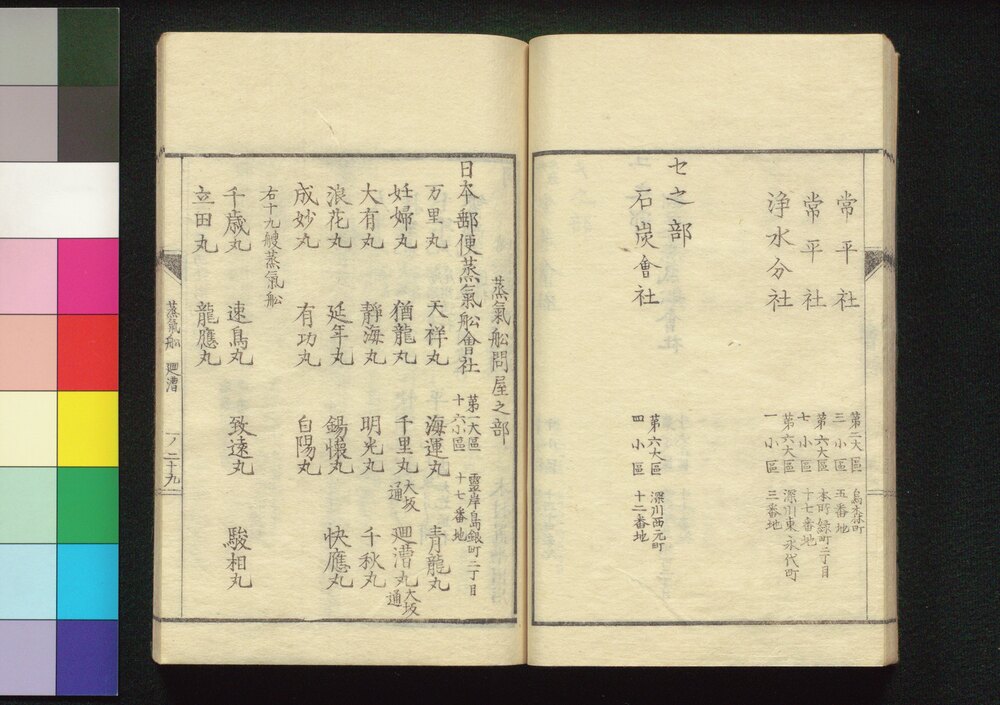 常平社 第二大區三小區 烏森町五番地
常平社 第六大區七小區 本所緑町二丁目十七番地
浄水分社 第六大區一小區 深川東永代町三番地
セ之部
石炭會社 第六大區四小區 深川西元町十二番地
蒸氣舩問屋之部
日本郵便蒸氣舩會社 第一大區十六小區 靈岸島銀町二丁目十七番地
万里丸 天祥丸 海運丸 青龍丸
妊婦丸 猶龍丸 千里丸 大坂通 廻漕丸 大坂通
大有丸 静海丸 明光丸 千秋丸
浪花丸 延年丸 錫懐丸 快鷹丸
成妙丸 有功丸 白陽丸
右十九艘蒸氣舩
千歳丸 速鳥丸 致遠丸 駿相丸
立田丸 龍鷹丸
蒸氣舩 廻漕 一ノ二十九